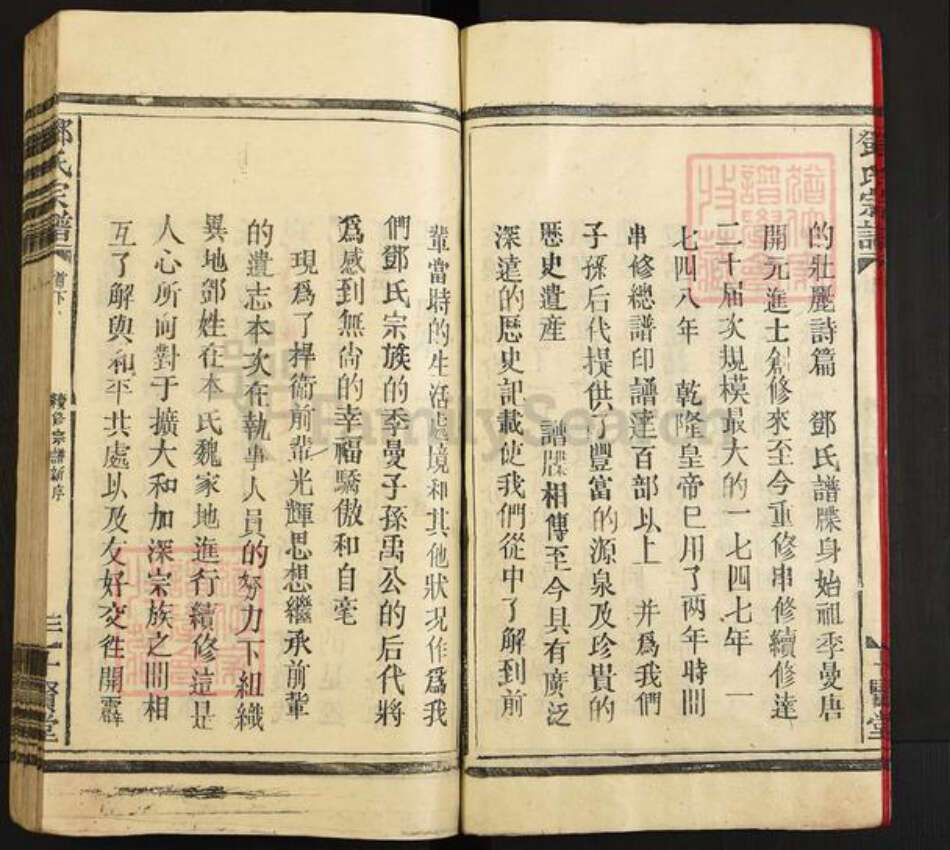 鄧氏宗譜
的壯麗詩篇 鄧氏譜牒身始祖季曼唐
開元進士創修來至今重修串修續修達
二十届次規模最大的一七四七年 一
七四八年 乾隆皇帝已用了两年時間
串修總譜印譜達百部以上 并爲我們
子孫后代提供了豐富的源泉及珍貴的
歷史遺産 譜牒相傳至今具有廣泛
深遠的歷史記載使我們從中了解到前
輩當時的生活處境和其他狀况作爲我
們鄧氏宗族的季曼子孫禹公的后代將
爲感到無尚的幸福驕傲和自毫
現爲了捍衛前輩光輝思想繼承前輩
的遺志本次在執事人員的努力下組織
異地鄧姓在本氏魏家地進行續修這是
人心所向對于擴大和加深宗族之間相
互了解與和平共處以及友好交徃開霹
鄧氏宗譜
首下
續修宗譜新序
三
賢堂
FamilySearch